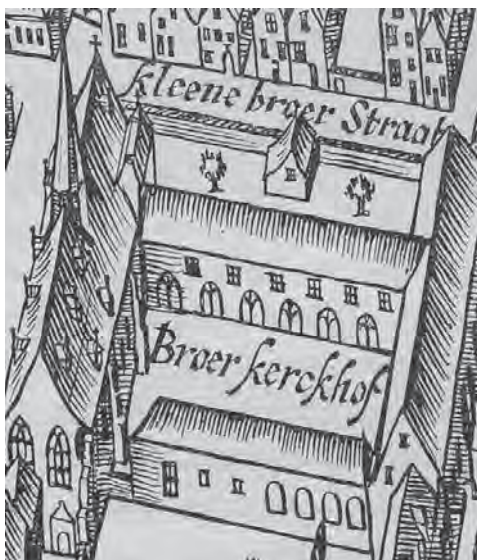 kleene broer Straat
Broer kerckhof